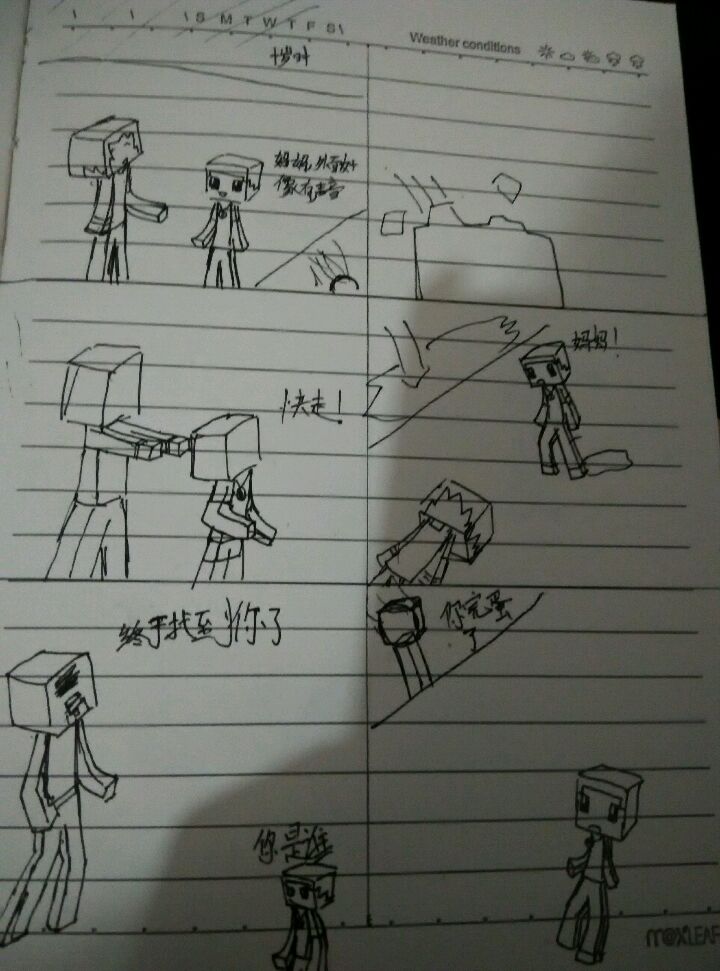 S M T W T F S
Weather conditions
十岁时
妈妈,外面好
像有声音
快走!
妈妈!
终于找到你了
你完蛋
了
你是谁
MOXLEAF